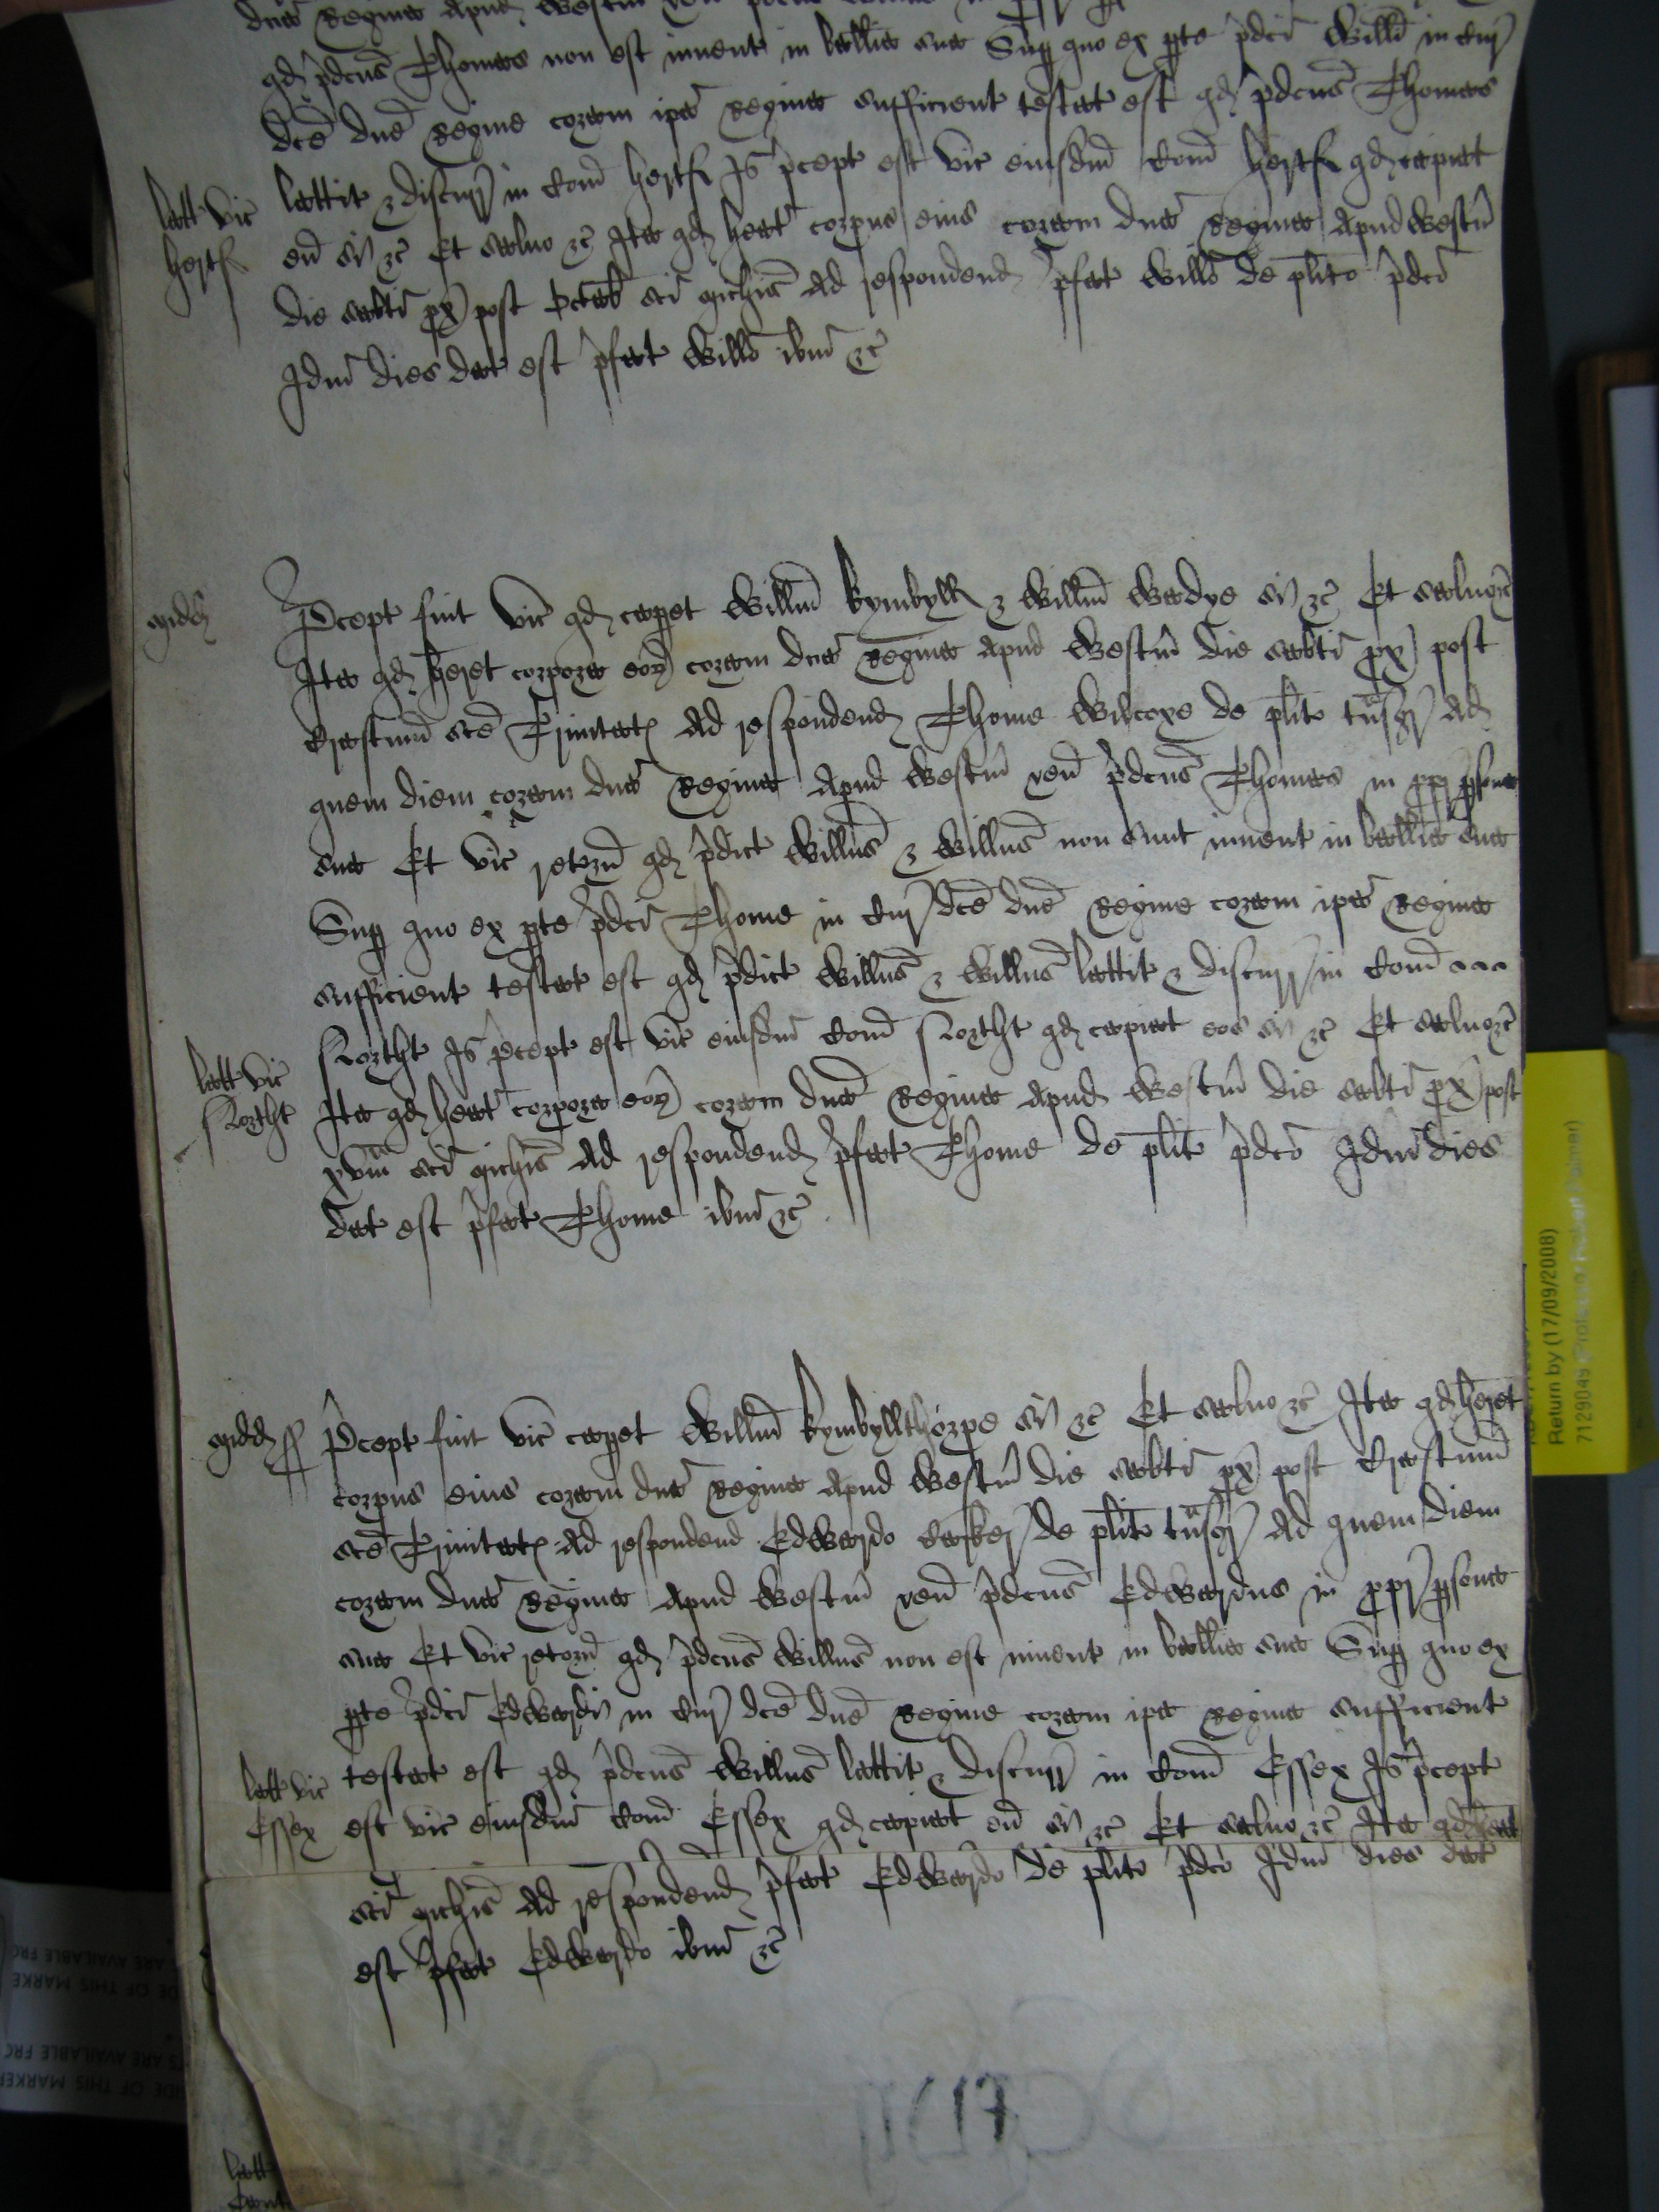 dna Regina apud Westm
qd p̄dcus Thomas non est invent in balliva sua Sup quo ex pte p̄dci Willi in Cur
dce dne Regine coram ipa Regina sufficient testat est qd p̄dcus Thomas
latt vic
hertf
latitt & discurr in Com hertf Jō p̄cept est vic eiusdm Com hertf qd capiat
eū si &c Et salvo &c Ita qd heat corpus eius coram dna Regina apud Westm
die sabti px post Octab sci michis ad respondend p̄fat Willo de plito p̄dci
Idm dies dat est p̄fat Willo ibm &c
midd
P̄cept fuit vic qd caperet Willm kymbyll & Willm Wadye si &c Et salvo &c
Ita qd heret corpora eor coram dna Regina apud Westm die sabti px post
Crastinū sce Trinitatis ad respondend Thome Wilcoxe de plito tnsgr Ad
quem diem coram dna Regina apud Westm ven p̄dcus Thomas in ppr psona
sua Et vic retorn qd p̄dict Willus & Willus non sunt invent in balliva sua
Sup quo ex pte p̄dci Thome in Cur dce dne Regine coram ipa Regina
sufficient testat est qd p̄dict Willus & Willus latitt & discurr in Com
latt vic
Northt
Northt Jō p̄cept est vic eiusdm Com Northt qd capiat eos si &c Et salvo &c
Ita qd heat corpora eor coram dna Regina apud Westm die sabti px post
xvm sci michis ad respondend p̄fat Thome de plito p̄dco Idm dies
dat est p̄fat Thome ibm &c
midd ss
P̄cept fuit vic caperet Willm kymbyllthorpe si &c Et salvo &c Ita qd heret
corpus eius coram dna Regina apud Westm die sabti px post Crastinū
sce Trinitatis ad respondend Edwardo Casker de plito tnsgr Ad quem diem
coram dna Regina apud Westm ven p̄dcus Edwardus in ppr psona
sua Et vic retorn qd p̄dcus Willus non est invent in balliva sua Sup quo ex
pte p̄dci Edwardi in Cur dce dne Regine coram ipa Regina sufficient
latt vic
Essex
testat est qd p̄dcus Willus latitt & discurr in Com Essex Jō p̄cept
est vic eiusdm Com Essex qd capiat eū si &c Et salvo &c Ita qd heat
sci michis ad respondend p̄fat Edwardo de plito p̄dco Idm dies dat
est p̄fat Edwardo ibm &c
latt
Return by (17/09/2008)
7129049 (Professor Robert Palmer)
ARE AVAILABLE FRO
DE OF THIS MARKE
TS ARE AVAILABLE FRO
SIDE OF THIS MARKER